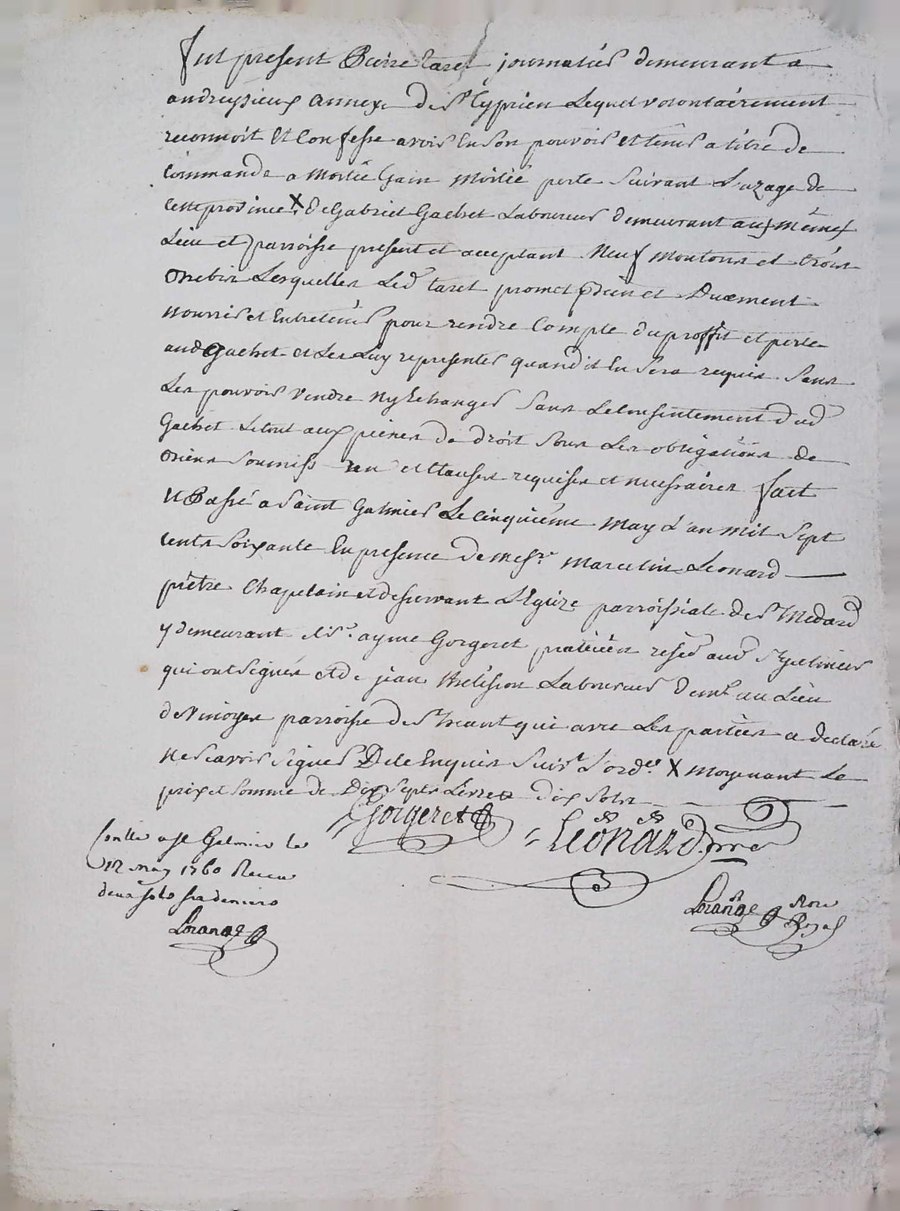 fut present Pierre taret journalier demeurant a
andreyzieux annexe de St Cyprien Lequel volontairement
reconnoit et Confesse avoir En son pouvoir et tenir a titre de
Commande a moitié Gain moitié perte suivant L'uzage de
cette province X de Gabriel Gachet Laboureur demeurant aux mêmes
Lieu et parroisse present et acceptant Neuf moutons et trois
onebis Lesquelles Led taret promet bien et Duement
nourrir et Entretenir pour rendre Compte du proffit et perte
aud Gachet et Les Luy representer quand il En sera requis sans
Les pouvoir vendre ny Echanger sans Le Consentement dud
Gachet Le tout aux peines de droit sous Les obligations de
biens soumiss ren et Clauses requises et necessaires fait
et Passé a Saint Galmier Le cinquiéme may L'an mil sept
cents soixante En presence de mesre Marcelin Leonard
prêtre Chapelain et desservant L'Eglize parroissiale de St Medard
y demeurant et sr ayme Gorgeret praticien resid aud St Galmier
qui ont signés et de jean Laboureur demt au Lieu
de parroisse de St qui avec Les parties a declaré
ne scavoir signer De ce Enquis suivt L'ordce X moyenant Le
prix et somme de Dix sept Livres dix sols
Gorgeret Leonard ptre
Contlé a St Galmier le
12 may 1760 Recu
deux sols six deniers
Lorange
Lorange Nore
Royal